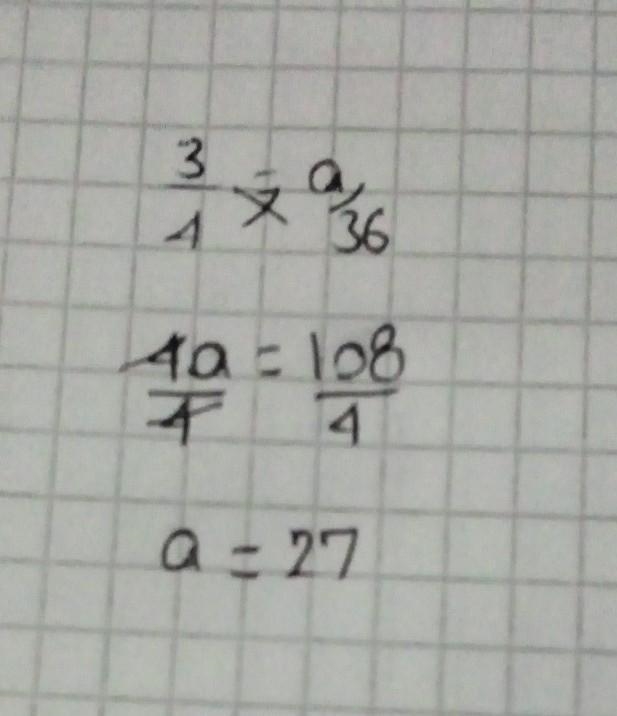 3/4 = a/36
4a/4 = 108/4
a = 27